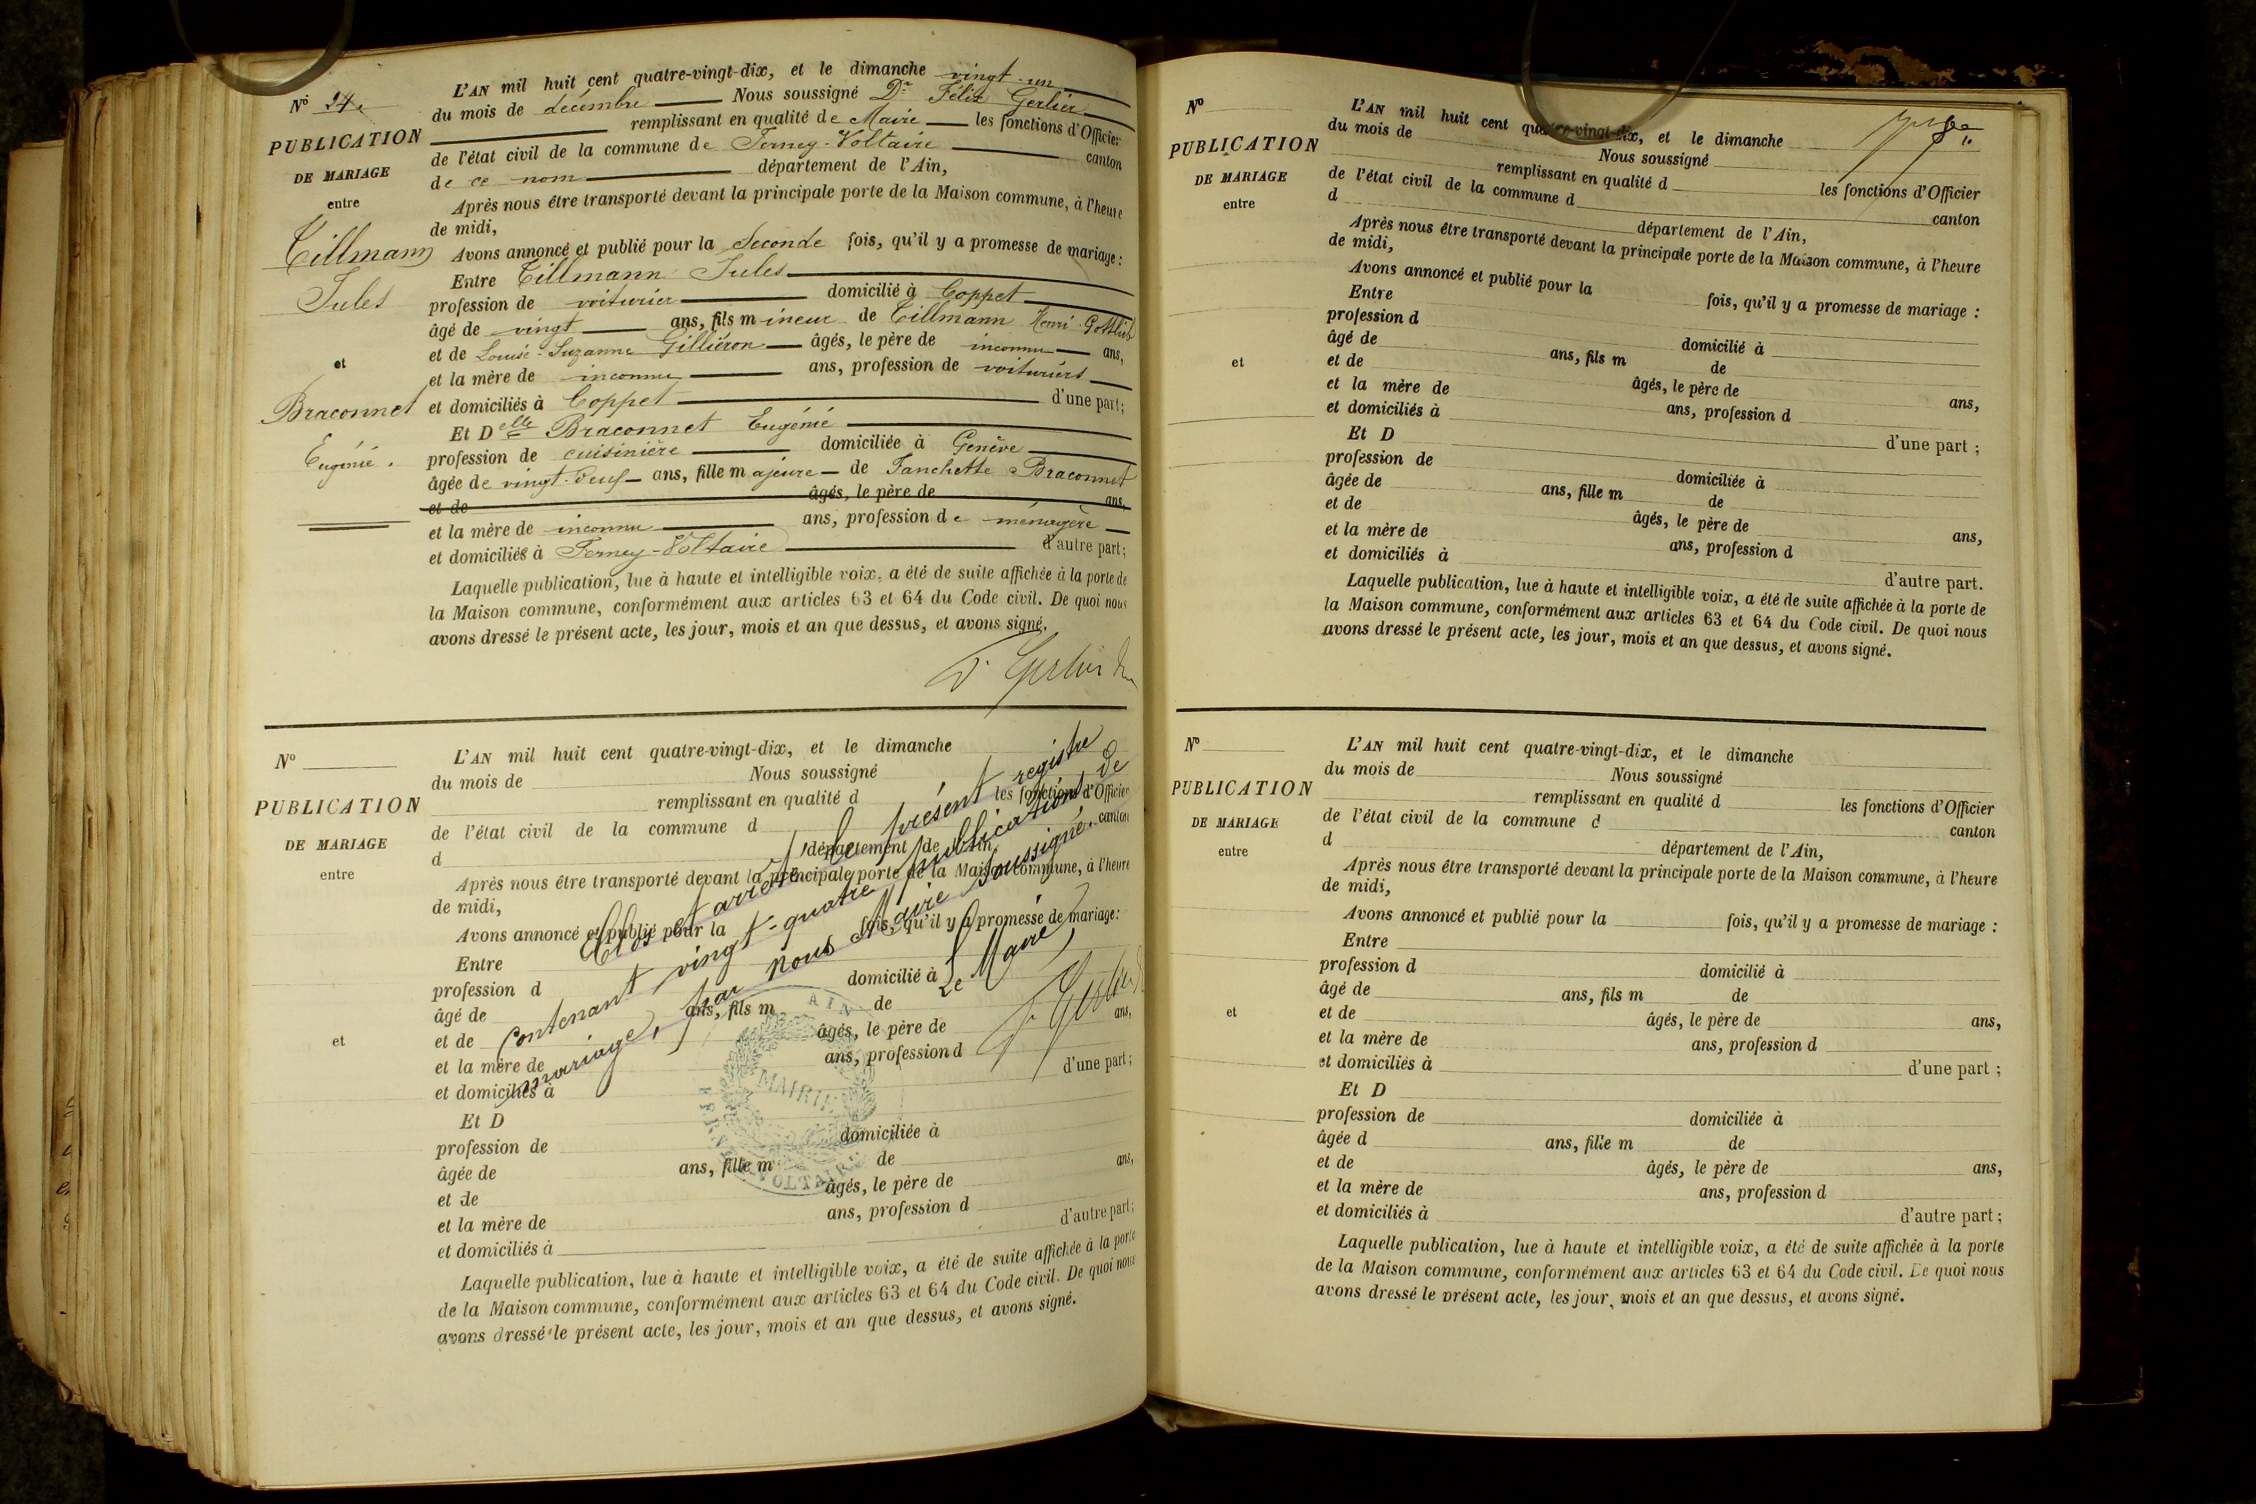 N° 24.
PUBLICATION
DE MARIAGE
entre
Tillmann
Jules
et
Braconnet
Eugénie.
L'AN mil huit cent quatre-vingt-dix, et le dimanche vingt-un
du mois de décembre Nous soussigné Dr Félix Gerlier
remplissant en qualité de Maire les fonctions d'Officier
de l'état civil de la commune de Ferney-Voltaire canton
de ce nom département de l'Ain,
Après nous être transporté devant la principale porte de la Maison commune, à l'heure
de midi,
Avons annoncé et publié pour la Seconde fois, qu'il y a promesse de mariage :
Entre Tillmann Jules
profession de voiturier domicilié à Coppet
âgé de vingt ans, fils mineur de Tillmann Henri-Gottlieb
et de Louise-Suzanne Gilliéron âgés, le père de inconnu ans,
et la mère de inconnu ans, profession de voituriers
et domiciliés à Coppet d'une part ;
Et Delle Braconnet Eugénie
profession de cuisinière domiciliée à Genève
âgée de vingt-neuf ans, fille majeure de Fanchette Braconnet
et de âgés, le père de ans,
et la mère de inconnu ans, profession de ménagère
et domiciliés à Ferney-Voltaire d'autre part ;
Laquelle publication, lue à haute et intelligible voix, a été de suite affichée à la porte de
la Maison commune, conformément aux articles 63 et 64 du Code civil. De quoi nous
avons dressé le présent acte, les jour, mois et an que dessus, et avons signé.
Dr Gerlier
N°
PUBLICATION
DE MARIAGE
entre
et
L'AN mil huit cent quatre-vingt-dix, et le dimanche
du mois de Nous soussigné
remplissant en qualité d les fonctions d'Officier
de l'état civil de la commune d canton
d département de l'Ain,
Après nous être transporté devant la principale porte de la Maison commune, à l'heure
de midi,
Avons annoncé et publié pour la fois, qu'il y a promesse de mariage :
Entre
profession d domicilié à
âgé de ans, fils m de
et de âgés, le père de ans,
et la mère de ans, profession d
et domiciliés à d'une part ;
Et D
profession de domiciliée à
âgée de ans, fille m de
et de âgés, le père de ans,
et la mère de ans, profession d
et domiciliés à d'autre part ;
Laquelle publication, lue à haute et intelligible voix, a été de suite affichée à la porte
de la Maison commune, conformément aux articles 63 et 64 du Code civil. De quoi nous
avons dressé le présent acte, les jour, mois et an que dessus, et avons signé.
Clos et arrêté le présent registre
contenant vingt-quatre publications de
mariage, par nous Maire soussigné.
Le Maire,
Gerlier
AIN
MAIRIE
VOLTAIRE
N°
PUBLICATION
DE MARIAGE
entre
et
L'AN mil huit cent quatre-vingt-dix, et le dimanche
du mois de Nous soussigné
remplissant en qualité d les fonctions d'Officier
de l'état civil de la commune d canton
d département de l'Ain,
Après nous être transporté devant la principale porte de la Maison commune, à l'heure
de midi,
Avons annoncé et publié pour la fois, qu'il y a promesse de mariage :
Entre
profession d domicilié à
âgé de ans, fils m de
et de âgés, le père de ans,
et la mère de ans, profession d
et domiciliés à d'une part ;
Et D
profession de domiciliée à
âgée de ans, fille m de
et de âgés, le père de ans,
et la mère de ans, profession d
et domiciliés à d'autre part.
Laquelle publication, lue à haute et intelligible voix, a été de suite affichée à la porte de
la Maison commune, conformément aux articles 63 et 64 du Code civil. De quoi nous
avons dressé le présent acte, les jour, mois et an que dessus, et avons signé.
N°
PUBLICATION
DE MARIAGE
entre
et
L'AN mil huit cent quatre-vingt-dix, et le dimanche
du mois de Nous soussigné
remplissant en qualité d les fonctions d'Officier
de l'état civil de la commune d canton
d département de l'Ain,
Après nous être transporté devant la principale porte de la Maison commune, à l'heure
de midi,
Avons annoncé et publié pour la fois, qu'il y a promesse de mariage :
Entre
profession d domicilié à
âgé de ans, fils m de
et de âgés, le père de ans,
et la mère de ans, profession d
et domiciliés à d'une part ;
Et D
profession de domiciliée à
âgée d ans, fille m de
et de âgés, le père de ans,
et la mère de ans, profession d
et domiciliés à d'autre part ;
Laquelle publication, lue à haute et intelligible voix, a été de suite affichée à la porte
de la Maison commune, conformément aux articles 63 et 64 du Code civil. De quoi nous
avons dressé le présent acte, les jour, mois et an que dessus, et avons signé.